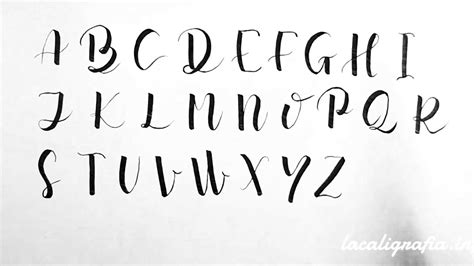 A B C D E F G H I
J K L M N O P Q R
S T U V W X Y Z
lacaligrafia.in